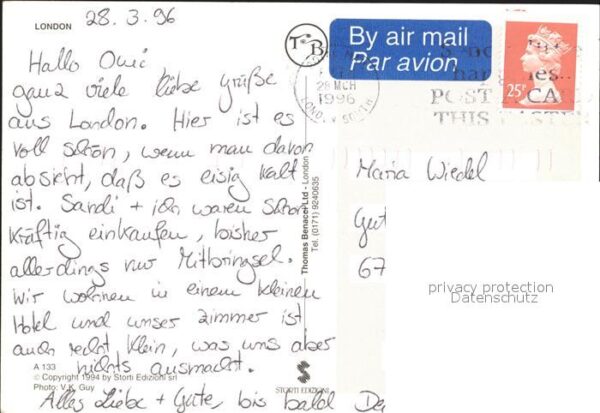 LONDON
28.3.96
Hallo Omi
ganz viele liebe Grüße
aus London. Hier ist es
voll schön, wenn man davon
absieht, daß es eisig kalt
ist. Sandi + ich waren schon
kräftig einkaufen, bisher
allerdings nur Mitbringsel.
Wir wohnen in einem kleinen
Hotel und unser Zimmer ist
auch recht klein, was uns aber
nichts ausmacht.
Alles Liebe + Gute, bis bald
A 133
© Copyright 1994 by Storti Edizioni srl
Photo: V.K. Guy
Thomas Benacci Ltd - London
Tel. (0171) 9240635
STORTI EDIZIONI
TB
By air mail
Par avion
28 MCH
1996
POST
THIS EASTER
25P
Maria Wiedel
Gut
67
privacy protection
Datenschutz